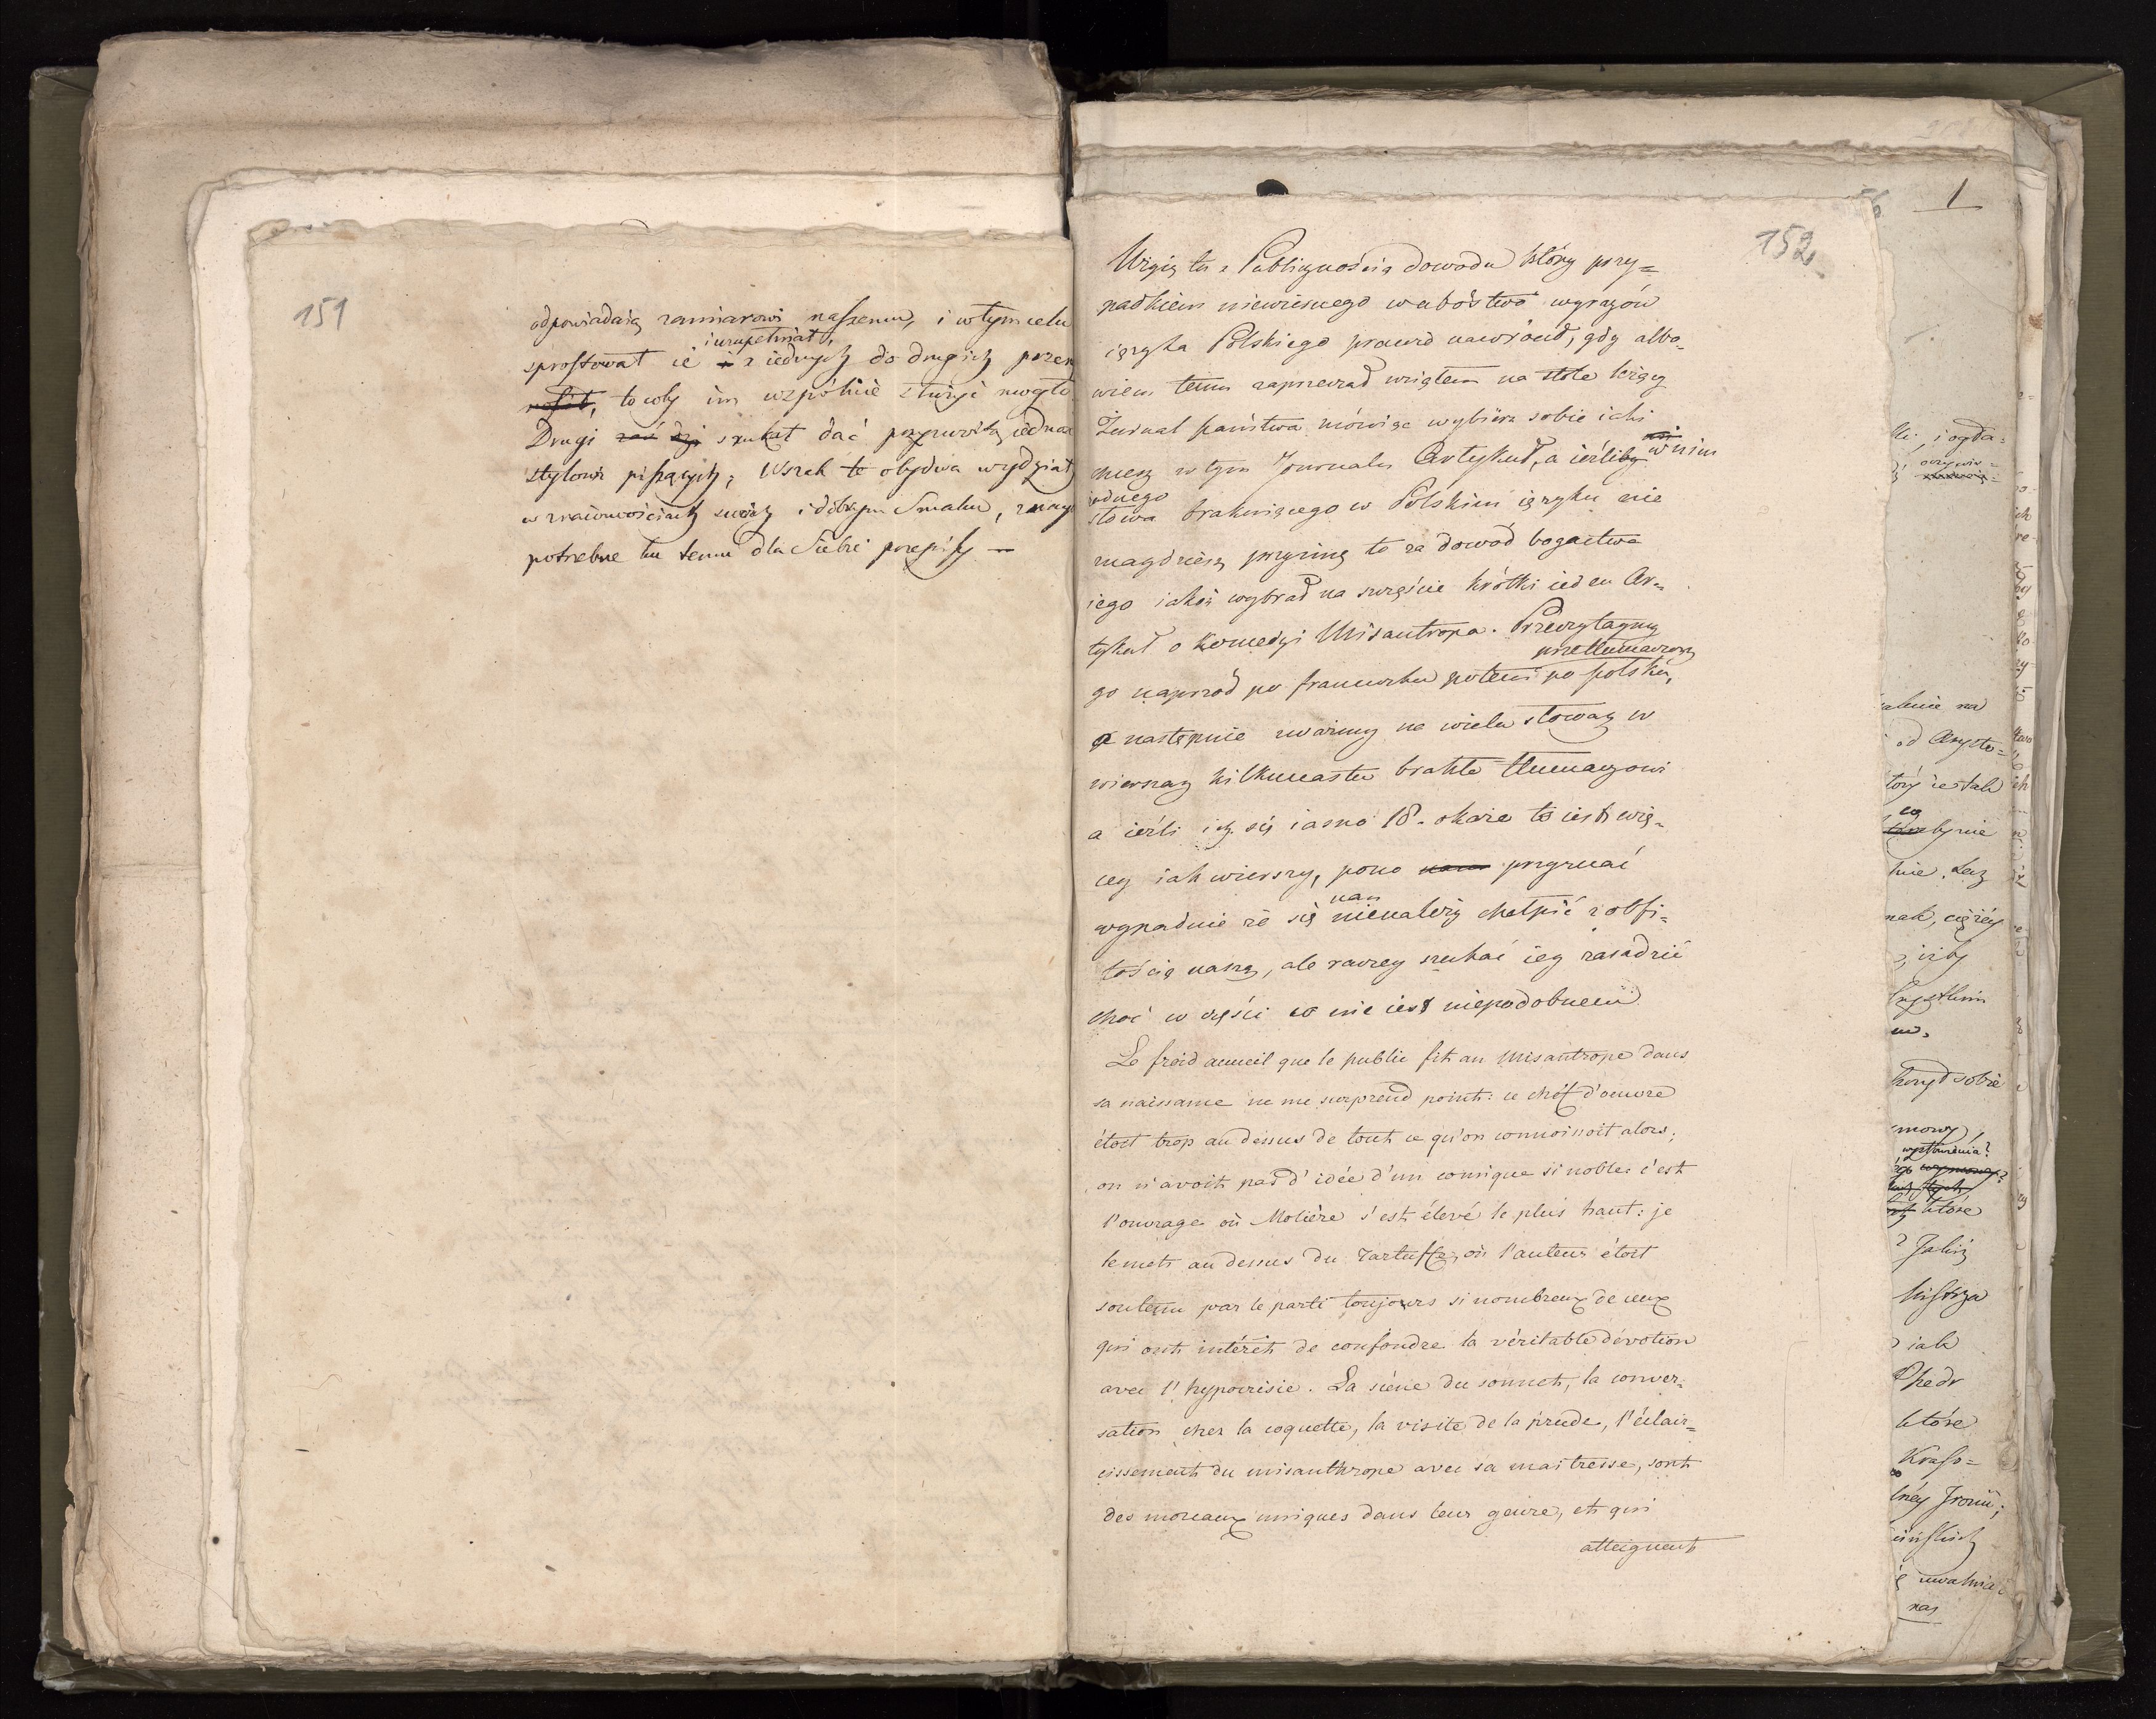 151
odpowiadaią zamiarowi naszemu, i wtym celu
iuzupełniał,
sprostował ie i z iednych do drugich przen
nosił, to coby im wspólnie służyć mogło.
Drugi zaś szukał dać przyzwoitą iedna
stylowi piszących; Wszak te obydwa wydział
w znaiomościach swoich i dobrym Smaku, znay
potrzebne ku temu dla Siebie przepisy —
152
Użyię tu z Publicznością dowodu który przy=
padkiem niewiernego w ubóstwo wyrazów
ięzyka Polskiego prawie nawrócił, gdy albo=
wiem temu zaprzeczał wziąłem na stole leżący
Żurnal państwa mówiąc wybierz sobie iaki
chcesz w tym Journalu Artykuł, a ieśliby w nim
iednego
słowa brakuiącego w Polskim ięzyku nie
znaydziesz przyimę to za dowód bogactwa
iego iakoż wybrał na szczęście krótki ieden Ar=
tykuł o Komedyi Misantropa. Przeczytaymy
przetłumaczony
go naprzód po francuzku potem po polsku,
a następnie uważmy na wielu słowach w
wierszach kilkunastu brakło tłumaczowi
a ieżli ich się iasno 18. okaże to iest wię=
cey iak wierszy, pono nam przyznać
nam
wypadnie że się nienależy chełpić z obfi=
tością naszą, ale raczey szukać iey zasadzić
choć w części co nie iest niepodobnem
Le froid acueil que le public fit au Misantrope dans
sa naissance ne me surprend point: ce chéf d'oeuvre
étoit trop au dessus de tout ce qu'on connoissoit alors;
on n'avoit pas d'idée d'un comique si noble: c'est
l'ouvrage où Molière s'est élevé le plus haut: je
le mets au dessus du Tartuffe, où l'auteur étoit
soutenu par le parti toujours si nombreux de ceux
qui ont intérêt de confondre la véritable dévotion
avec l'hypocrisie. La scène du sonnet, la conver=
sation chez la coquette, la visite de la prude, l'éclair=
cissement du misanthrope avec sa maitresse, sont
des morceaux uniques dans leur genre, et qui
atteignent
1
i ogła=
od Arysto=
który iestak
nie. Lecz
nak, ciężey
sobie
mowy,
które
Jakiż
iak
Phedr
które
Kraso=
Ironii;
nas